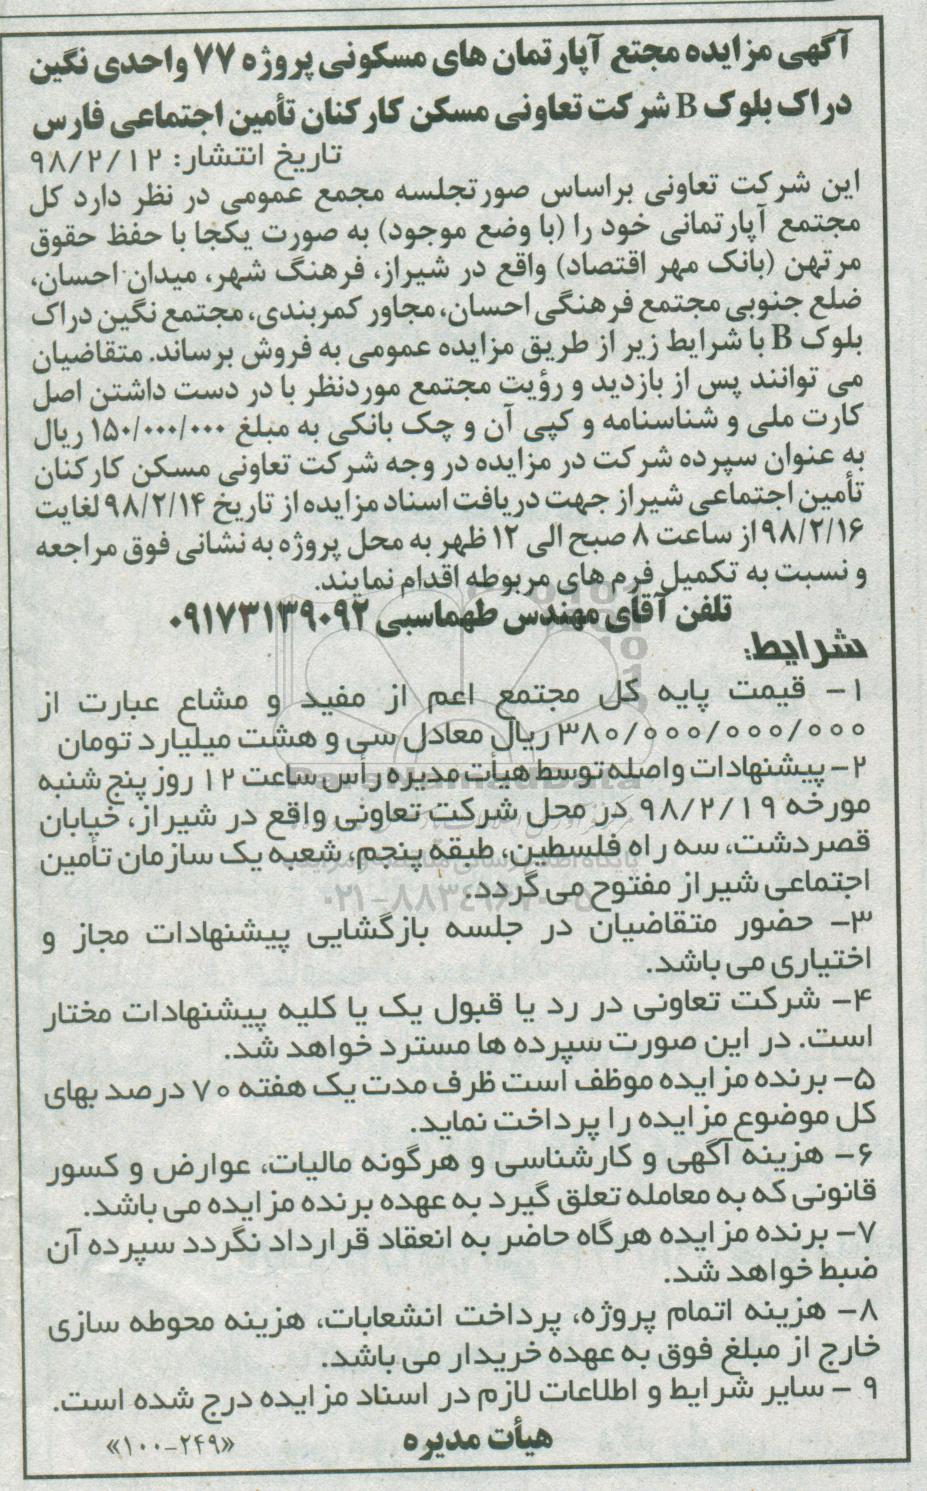 آگهی مزایده مجتع آپارتمان های مسکونی پروژه ۷۷ واحدی نگین
دراک بلوک B شرکت تعاونی مسکن کارکنان تأمین اجتماعی فارس
تاریخ انتشار: ۹۸/۲/۱۲
این شرکت تعاونی براساس صورتجلسه مجمع عمومی در نظر دارد کل
مجتمع آپارتمانی خود را (با وضع موجود) به صورت یکجا با حفظ حقوق
مرتهن (بانک مهر اقتصاد) واقع در شیراز، فرهنگ شهر، میدان احسان،
ضلع جنوبی مجتمع فرهنگی احسان، مجاور کمربندی، مجتمع نگین دراک
بلوک B با شرایط زیر از طریق مزایده عمومی به فروش برساند. متقاضیان
می توانند پس از بازدید و رؤیت مجتمع موردنظر با در دست داشتن اصل
کارت ملی و شناسنامه و کپی آن و چک بانکی به مبلغ ۱۵۰/۰۰۰/۰۰۰ ریال
به عنوان سپرده شرکت در مزایده در وجه شرکت تعاونی مسکن کارکنان
تأمین اجتماعی شیراز جهت دریافت اسناد مزایده از تاریخ ۹۸/۲/۱۴ لغایت
۹۸/۲/۱۶ از ساعت ۸ صبح الی ۱۲ ظهر به محل پروژه به نشانی فوق مراجعه
و نسبت به تکمیل فرم های مربوطه اقدام نمایند.
تلفن آقای مهندس طهماسبی ۰۹۱۷۳۱۳۹۰۹۲
شرایط:
۱- قیمت پایه کل مجتمع اعم از مفید و مشاع عبارت از
۳۸۰/۰۰۰/۰۰۰/۰۰۰ ریال معادل سی و هشت میلیارد تومان
۲- پیشنهادات واصله توسط هیأت مدیره رأس ساعت ۱۲ روز پنج شنبه
مورخه ۹۸/۲/۱۹ در محل شرکت تعاونی واقع در شیراز، خیابان
قصردشت، سه راه فلسطین، طبقه پنجم، شعبه یک سازمان تأمین
اجتماعی شیراز مفتوح می گردد.
۳- حضور متقاضیان در جلسه بازگشایی پیشنهادات مجاز و
اختیاری می باشد.
۴- شرکت تعاونی در رد یا قبول یک یا کلیه پیشنهادات مختار
است. در این صورت سپرده ها مسترد خواهد شد.
۵- برنده مزایده موظف است ظرف مدت یک هفته ۷۰ درصد بهای
کل موضوع مزایده را پرداخت نماید.
۶- هزینه آگهی و کارشناسی و هرگونه مالیات، عوارض و کسور
قانونی که به معامله تعلق گیرد به عهده برنده مزایده می باشد.
۷- برنده مزایده هرگاه حاضر به انعقاد قرارداد نگردد سپرده آن
ضبط خواهد شد.
۸- هزینه اتمام پروژه، پرداخت انشعابات، هزینه محوطه سازی
خارج از مبلغ فوق به عهده خریدار می باشد.
۹ - سایر شرایط و اطلاعات لازم در اسناد مزایده درج شده است.
هیأت مدیره
«۱۰۰-۲۴۹»